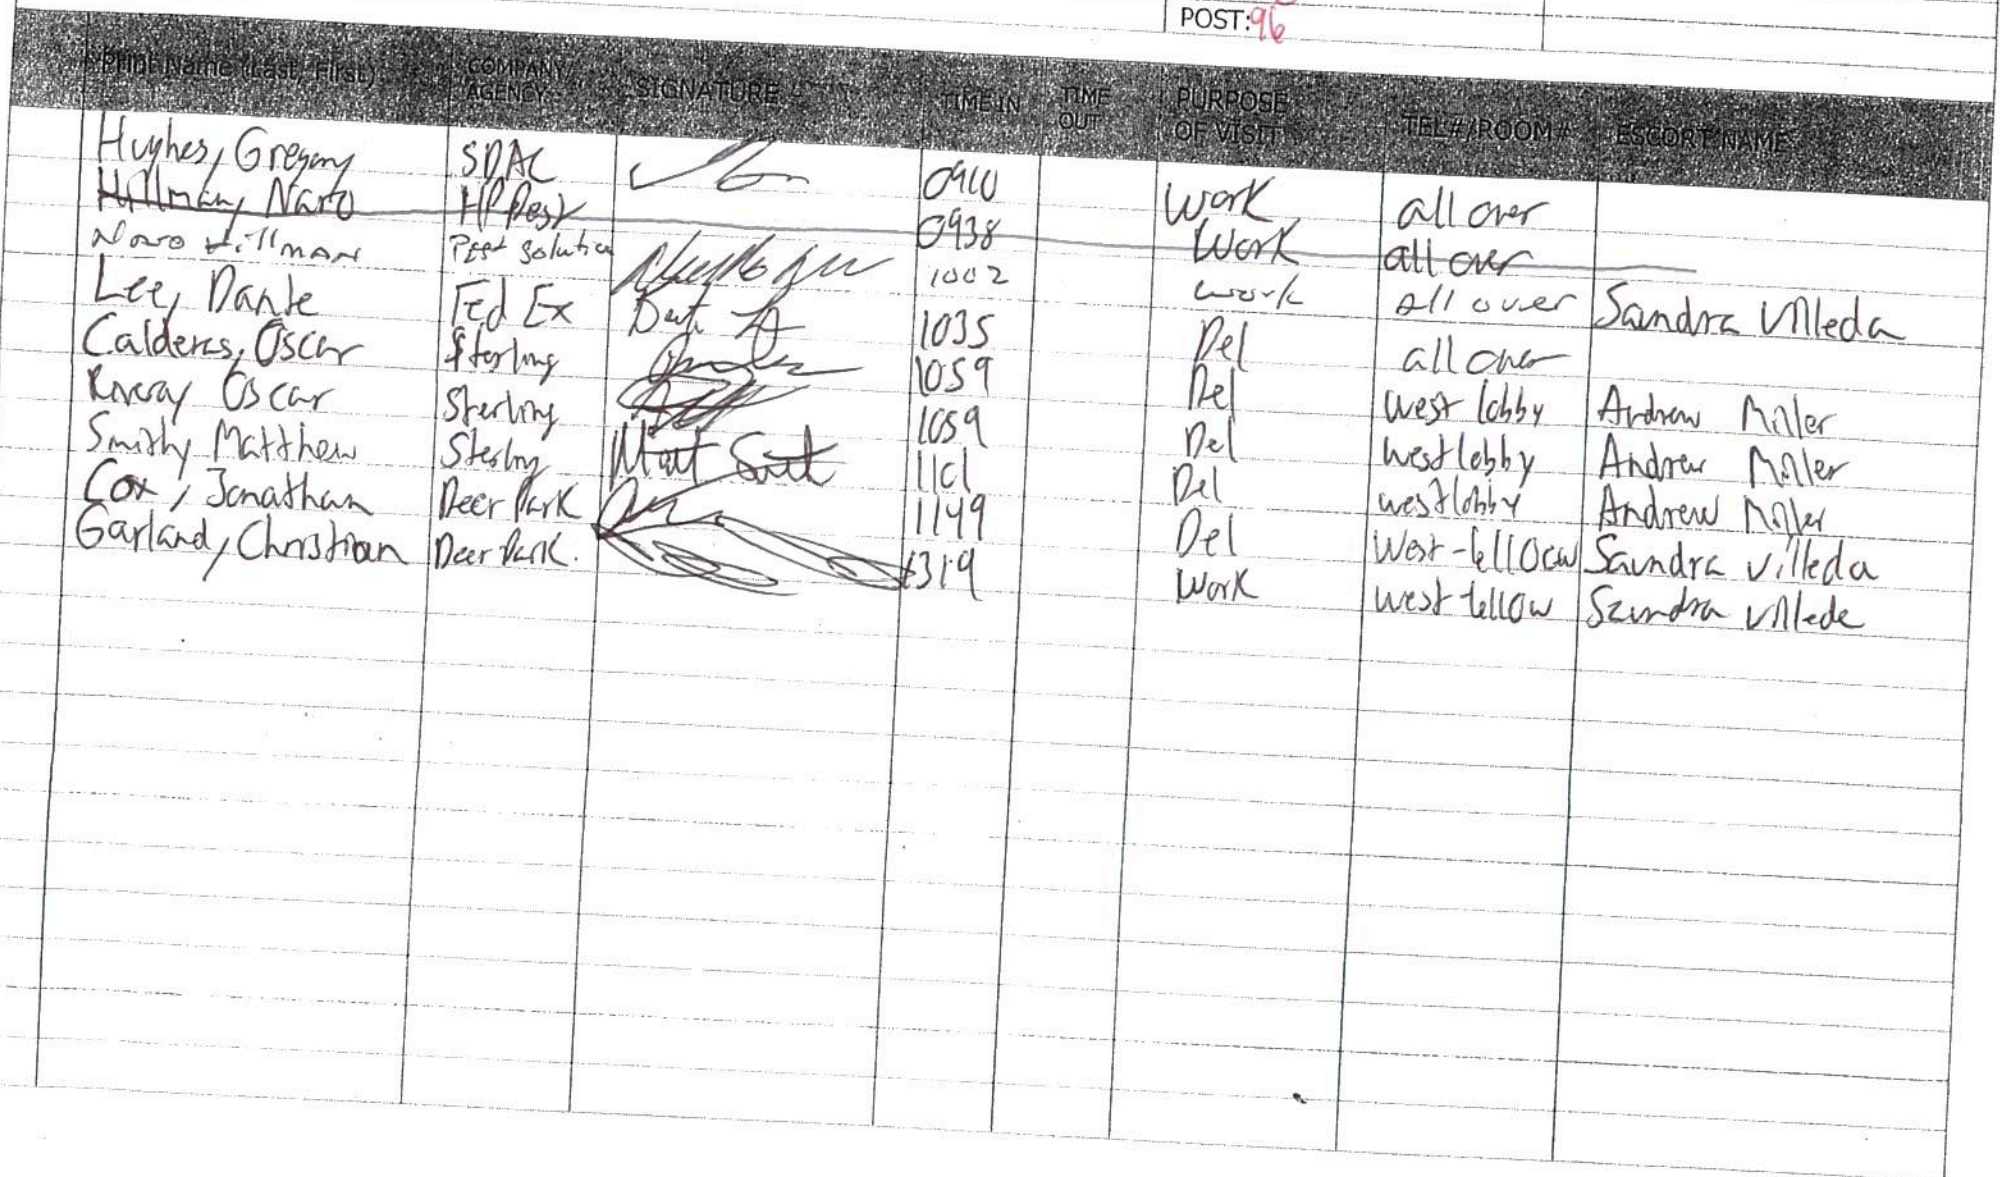 POST:96
Print Name (Last, First) COMPANY/ AGENCY SIGNATURE TIME IN TIME OUT PURPOSE OF VISIT TEL#/ROOM# ESCORT NAME
Hughes, Gregory SDAC 0910 Work all over
Hillman, Naro HP Pest 0938 Work all over
Naro Hillman Pest Solution 1002 work All over Saundra Villeda
Lee, Dante Fed Ex 1035 Del all over
Calderas, Oscar Sterling 1059 Del west lobby Andrew Miller
Rivera, Oscar Sterling 1059 Del west lobby Andrew Miller
Smith, Matthew Sterling Matt Smith 1101 Del west lobby Andrew Miller
Cox, Jonathan Deer Park 1149 Del West- Saundra Villeda
Garland, Christian Deer Park. 1319 Work west Saundra Villeda